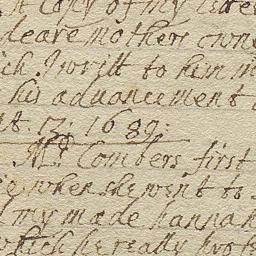 A Copy of my
deare mothers owne
I writt to him
his advancement
13: 1689:
Mrs Combers first
when she went to
my made hannah
which he really wrote